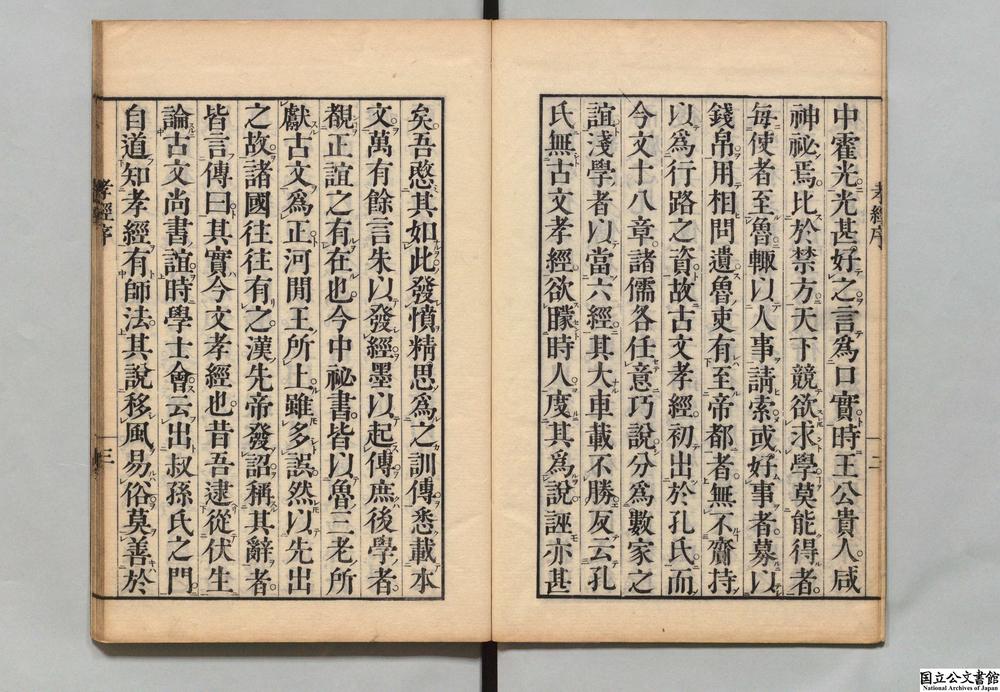 孝經序
二
中霍光光甚好之言爲口實時王公貴人咸
神祕焉比於禁方天下競欲求學莫能得者
每使者至魯輙以人事請索或好事者募以
錢帛用相問遺魯吏有至帝都者無不齎持
以爲行路之資故古文孝經初出於孔氏而
今文十八章諸儒各任意巧說分爲數家之
誼淺學者以當六經其大車載不勝反云孔
氏無古文孝經欲矇時人度其爲說誣亦甚
矣吾愍其如此發憤精思爲之訓傳悉載本
文萬有餘言朱以發經墨以起傳庶後學者
覩正誼之有在也今中祕書皆以魯三老所
獻古文爲正河間王所上雖多誤然以先出
之故諸國往往有之漢先帝發詔稱其辭者
皆言傳曰其實今文孝經也昔吾逮從伏生
論古文尚書誼時學士會云出叔孫氏之門
自道知孝經有師法其說移風易俗莫善於
孝經序
三
国立公文書館
National Archives of Japan